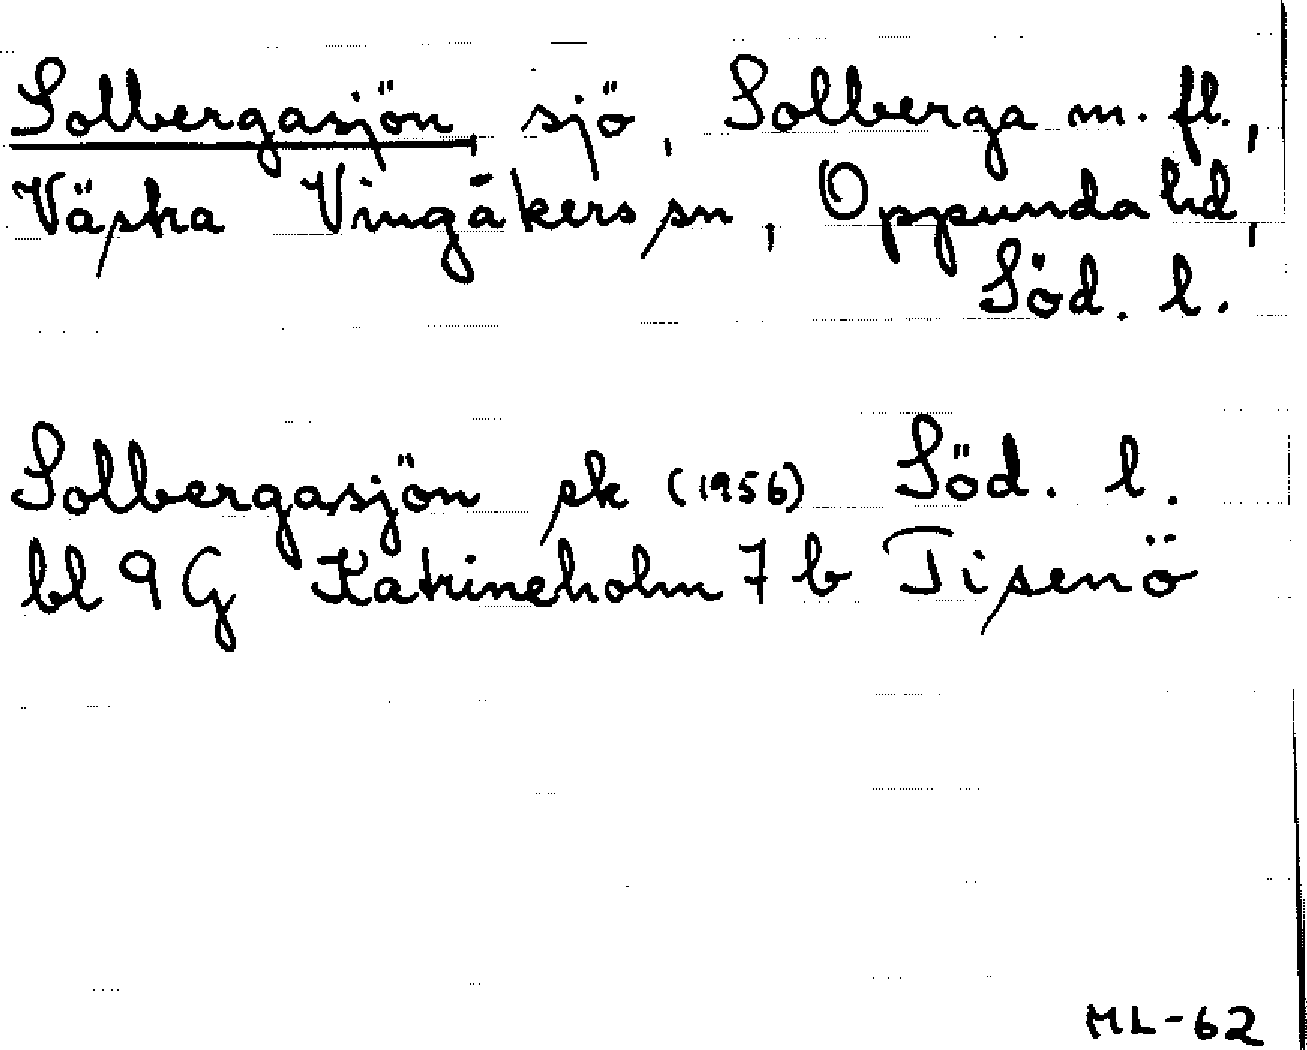 Solbergasjön, sjö, Solberga m. fl.,
Västra Vingåkers sn, Oppunda hd,
Söd. l.
Solbergasjön ek (1956) Söd. l.
bl 9 G Katrineholm 7 b Tisenö
ML-62